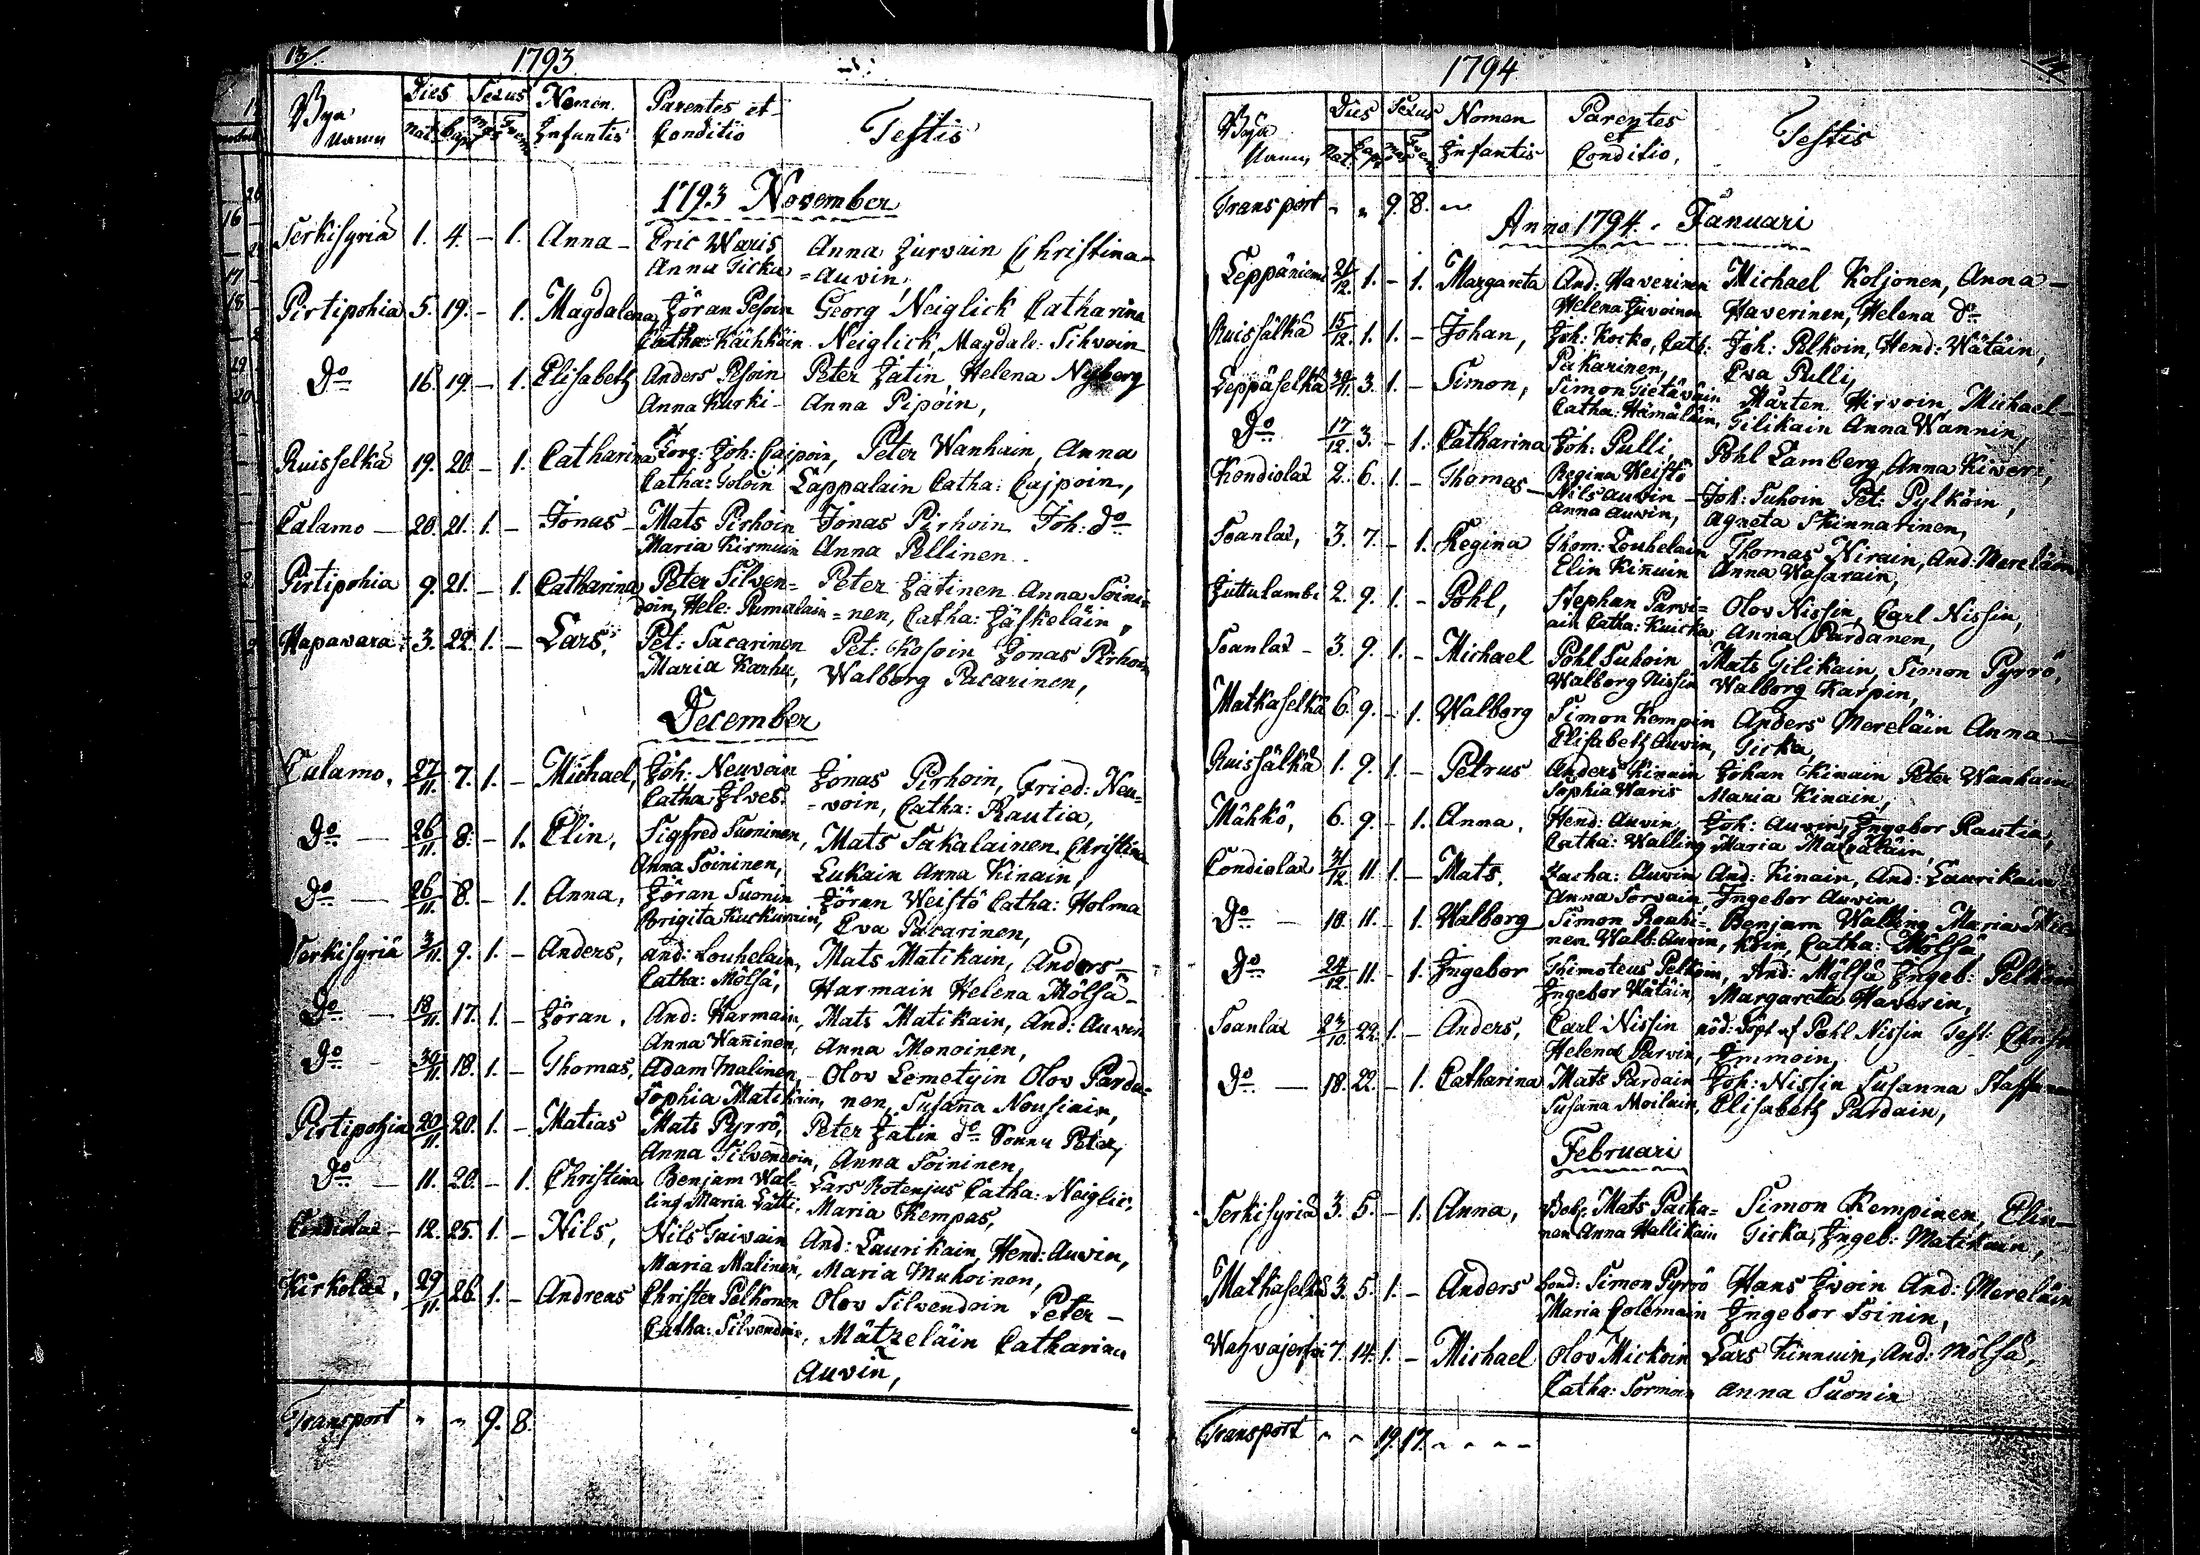 13/.
1793
Bya Namn Dies Sexus Nomen Infantis Parentes et Conditio Testis
Nat. Bap. Mas. Fem.
1793 November
Serkisyriä 1. 4. – 1. Anna – Eric Waris Anna Zurvain Christina
Anna Ticka =Auvin,
Pirtipohia 5. 19. – 1. Magdalena Jöran Pesoin Georg Neiglick Catharina
Catha: Kächköin Neiglick, Magdale: Sihvoin
Do 16. 19. – 1. Elisabeth Anders Pesoin Peter Jatin, Helena Nyborg
Anna Kurki – Anna Pipoin,
Ruisselkä 19. 20. – 1. Catharina Joh: Caipoin, Peter Wanhain, Anna
Catha: Toloin Lappalain Catha: Cajpoin,
Calamo – 20. 21. 1. – Jonas – Mats Pirhoin Jonas Pirhoin Joh: do
Maria Kirmuin Anna Pellinen
Pirtipohia 9. 21. – 1. Catharina Peter Silven= Peter Jatinen Anna Soini=
doin, Hele: Pumalain =nen, Catha: Jäskeläin,
Hapavara 3. 22. 1. – Lars, Pet: Sacarinen Pet: Kosoin Jonas Pirhoin
Maria Karhu, Walborg Pacarinen,
December
Calamo, 27/11. 7. 1. – Michael, Joh: Neuvoin Jonas Pirhoin, Fried: Neu=
Catha: Ilves =voin, Catha: Rautia,
Do – 26/11. 8. – 1. Elin, Sigfred Suoninen, Mats Sakalainen Christina
Anna Soininen, Lukain Anna Kinain,
Do – 26/11. 8. – 1. Anna, Jöran Suonin Jöran Weistö Catha: Holma
Brigita Kuckurain, Eva Pacarinen,
Serkisyriä 3/11. 9. 1. – Anders, And: Louhelain, Mats Matikain, Anders –
Catha: Mölsä, Harmain Helena Mölsä –
Do – 18/11. 17. 1. – Jöran, And: Harmain, Mats Matikain, And: Auvin
Anna Wanninen, Anna Monoinen,
Do – 30/11. 18. 1. – Thomas, Adam Malinen, Olov Lemetyin Olov Parda=
Sophia Matikain, nen, Susanna Nousiain,
Pirtipohia 20/11. 20. 1. – Matias Mats Pyrrö, Peter Jatin do Sonnu Peter,
Anna Silvendoin, Anna Soininen,
Do – 11. 20. – 1. Christina Benjam Wal= Lars Rotenjus Catha: Neiglic,
ling Maria Lätti, Maria Kempas,
Condiolax – 12. 25. 1. – Nils, Nils Taivain And: Laurikain, Hend: Auvin,
Maria Malinen, Maria Muhoinen,
Kirkolax, 29/11. 26. 1. – Andreas Christer Pelkonen Olov Silvendoin Peter –
Catha: Silvendoin, Mätzeläin Catharina
Auvin,
Transport " " 9. 8.
14
1794
Bya Namn, Dies Sexus Nomen Infantis Parentes et Conditio, Testis
Nat. Bap. Mas. Fem.
Transport " " 9. 8. "
Anno 1794. Januari
Leppäniemi 21/12. 1. – 1. Margareta And: Haverinen Michael Koljonen, Anna –
Helena Juvoinen Haverinen, Helena do
Ruissälkä 15/12. 1. 1. – Johan, Joh: Kocko, Cath: Joh: Pelkoin, Hend: Wätäin,
Pakarinen, Eva Pulli,
Leppäselkä 30/11. 3. 1. – Simon, Simon Tietäväin Mårten Hirvoin, Michael –
Catha: Hämäläin, Tilikain Anna Wannin,
Do 17/12. 3. – 1. Catharina Joh: Pulli, Pohl Lamberg Anna Kiveri,
Regina Weistö
Kondiolax 2. 6. 1. – Thomas – Nils Auvin – Joh: Suhoin Pet: Pylköin,
Anna Auvin, Agneta Skinnarinen,
Soanlax, 3. 7. – 1. Regina Thom: Louhelain Thomas Nirain, And: Mereläin
Elin Kinuin Anna Wasarain,
Juttulambi 2. 9. 1. – Pohl, Stephan Parvi= Olov Nissin, Carl Nissin,
ain Catha: Kuicka, Anna Pardanen,
Soanlax – 3. 9. 1. – Michael Pohl Suhoin Mats Tilikain, Simon Pyrrö,
Walborg Nissin Walborg Karpin,
Matkaselkä 6. 9. – 1. Walborg Simon Kempin Anders Mereläin Anna –
Elisabeth Auvin, Ticka,
Ruissälkä 1. 9. 1. – Petrus Anders Kinain Johan Kinain Peter Wanhain
Sophia Waris Maria Kinain,
Mähkö, 6. 9. – 1. Anna, Hend: Auvin Joh: Auvin, Ingebor Rautia,
Catha: Walling Maria
Condiolax 31/12. 11. 1. – Mats, Zacha: Auvin And: Kinain, And: Laurikain
Anna Sorvain, Ingebor Auvin
Do – 10. 11. – 1. Walborg Simon Benjam Walling Maria
nen Walb: Auvin, Catha: Mölsä
Do 24/12. 11. – 1. Ingebor Thimoteus Pelkoin, And: Mölsä Ingeb: Pelkoin
Ingebor Wätäin, Margareta Haverin,
Soanlax 23/10. 22. 1. – Anders, Carl Nissin nöd: döpt af Pohl Nissin Test
Helena Parvin, Immoin,
Do – 18. 22. – 1. Catharina Mats Pardain Joh: Nissin Susanna
Susanna Moilain, Elisabeth Pardain,
Februari
Serkisyriä 3. 5. – 1. Anna, Mats Packa= Simon Kempinen, Elin –
nen Anna Hallikain Ticka, Ingeb: Matikain,
Matkaselkä 3. 5. 1. – Anders Simon Pyrrö Hans Ivoin And: Mereläin
Maria Colemain Ingebor Soinin,
Wahvajerfvi 7. 14. 1. – Michael Olov Mickoin Lars Kinnuin, And: Mölsä,
Catha: Sormoin Anna Suonin
Transport " " 19. 17. " " " "